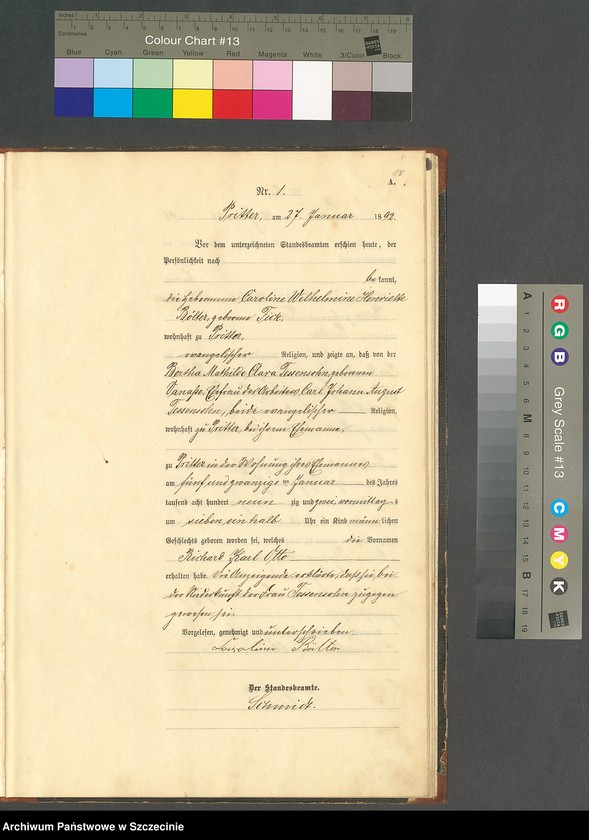 Inches
Centimetres
Colour Chart #13
Blue Cyan Green Yellow Red Magenta White 3/Color Black
A.
Nr. 1.
Pritter, am 27. Januar 1892.
Vor dem unterzeichneten Standesbeamten erschien heute, der
Persönlichkeit nach
bekannt,
die Hebeamme Caroline Wilhelmine Henriette
Bölter, geborene Fick,
wohnhaft zu Pritter,
evangelischer Religion, und zeigte an, daß von der
Bertha Mathilde Clara Tessensohn geborenen
Ehefrau des Arbeiters Carl Johann August
Tessensohn, beide evangelischer Religion,
wohnhaft zu Pritter bei ihrem Ehemanne,
zu Pritter in der Wohnung ihres Ehemannes
am fünf und zwanzigsten Januar des Jahres
tausend acht hundert neunzig und zwei, vormittags
um sieben ein halb Uhr ein Kind männlichen
Geschlechts geboren worden sei, welches die Vornamen
Richard Karl Otto
erhalten habe. Die Anzeigende erklärte, daß sie bei
der Niederkunft der Frau Tessensohn zugegen
gewesen sei.
Vorgelesen, genehmigt und unterschrieben.
Caroline Bölter
Der Standesbeamte.
Schmidt.
Grey Scale #13
R G B
C M Y K
A 1 2 3 4 5 6 M 8 9 10 11 12 13 14 15 B 17 18 19
Archiwum Państwowe w Szczecinie